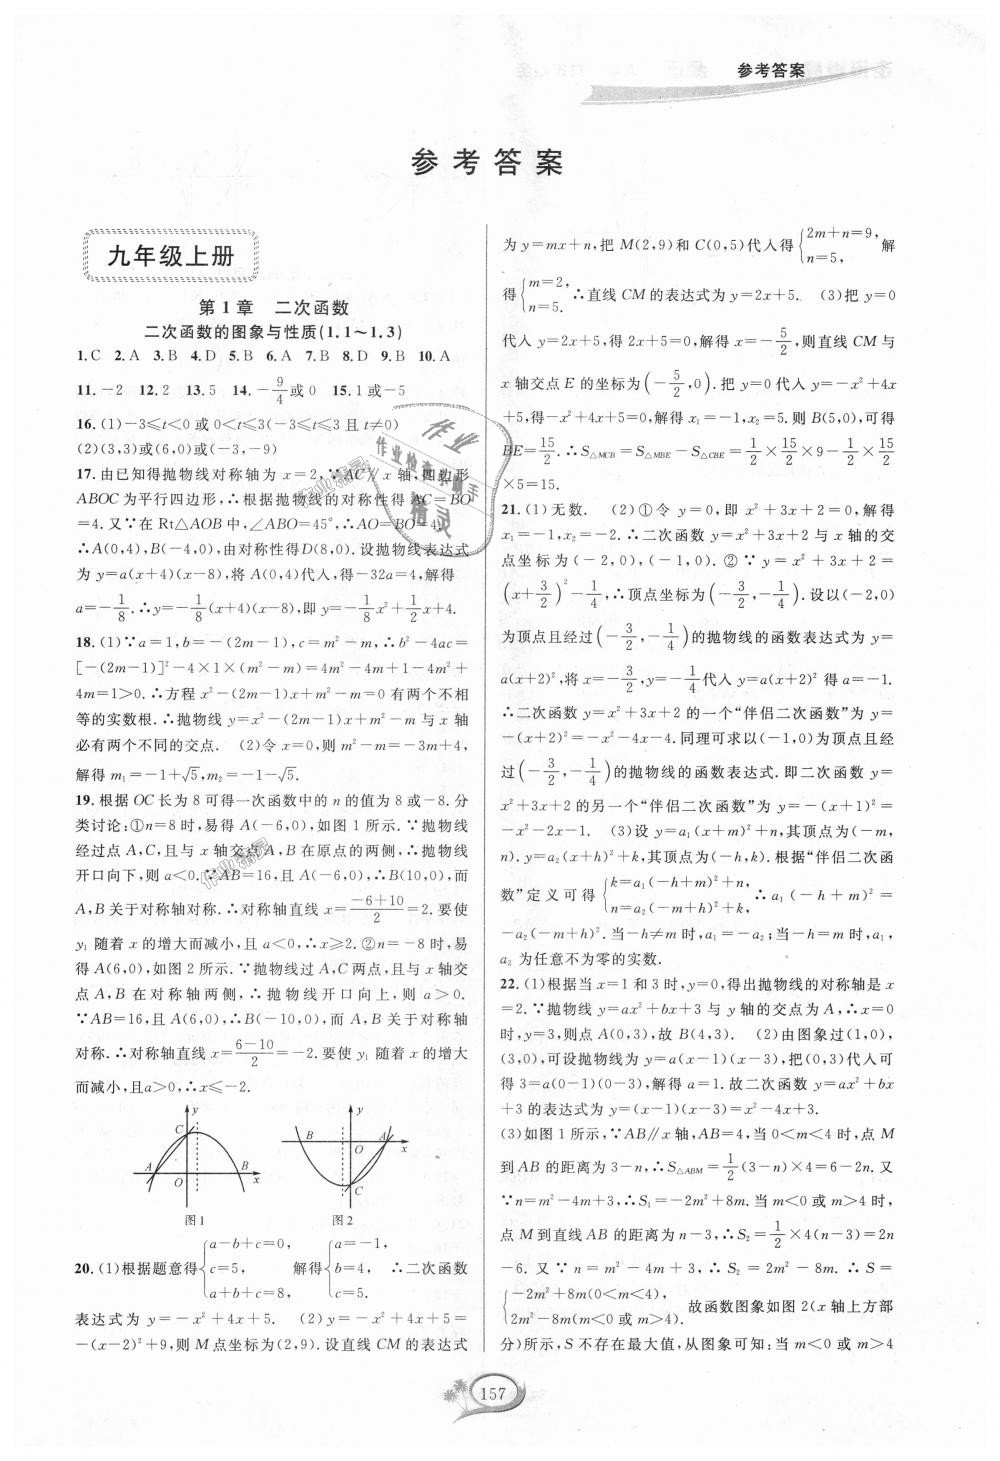 参考答案
参考答案
九年级上册
第1章 二次函数
二次函数的图象与性质(1.1~1.3)
1.C 2.A 3.B 4.D 5.B 6.A 7.B 8.D 9.B 10.A
11.-2 12.2 13.5 14.-9/4或0 15.1或-5
16.(1)-3≤t<0或0<t≤3(-3≤t≤3且t≠0)
(2)(3,3)或(6,0)或(-3,-9)
17.由已知得抛物线对称轴为x=2,∵AC∥x轴,四边形
ABOC为平行四边形,∴根据抛物线的对称性得AC=BO
=4.又∵在Rt△AOB中,∠ABO=45°,∴AO=BO=4,
∴A(0,4),B(-4,0),由对称性得D(8,0).设抛物线表达式
为y=a(x+4)(x-8),将A(0,4)代入,得-32a=4,解得
a=-1/8.∴y=-1/8(x+4)(x-8),即y=-1/8x²+1/2x+4.
18.(1)∵a=1,b=-(2m-1),c=m²-m,∴b²-4ac=
[-(2m-1)]²-4×1×(m²-m)=4m²-4m+1-4m²+
4m=1>0.∴方程x²-(2m-1)x+m²-m=0有两个不相
等的实数根.∴抛物线y=x²-(2m-1)x+m²-m与x轴
必有两个不同的交点. (2)令x=0,则m²-m=-3m+4,
解得m₁=-1+√5,m₂=-1-√5.
19.根据OC长为8可得一次函数中的n的值为8或-8.分
类讨论:①n=8时,易得A(-6,0),如图1所示.∵抛物线
经过点A,C,且与x轴交点A,B在原点的两侧,∴抛物线
开口向下,则a<0.∵AB=16,且A(-6,0),∴B(10,0),而
A,B关于对称轴对称.∴对称轴直线x=(-6+10)/2=2.要使
y₁随着x的增大而减小,且a<0,∴x≥2.②n=-8时,易
得A(6,0),如图2所示.∵抛物线过A,C两点,且与x轴交
点A,B在对称轴两侧,∴抛物线开口向上,则a>0.
∵AB=16,且A(6,0),∴B(-10,0),而A,B关于对称轴
对称.∴对称轴直线x=(6-10)/2=-2.要使y₁随着x的增大
而减小,且a>0,∴x≤-2.
y C A O B x
图1
y B O A x C
图2
20.(1)根据题意得{a-b+c=0, c=5, a+b+c=8, 解得{a=-1, b=4, c=5. ∴二次函数
表达式为y=-x²+4x+5. (2)y=-x²+4x+5=
-(x-2)²+9,则M点坐标为(2,9).设直线CM的表达式
为y=mx+n,把M(2,9)和C(0,5)代入得{2m+n=9, n=5, 解
得{m=2, n=5. ∴直线CM的表达式为y=2x+5. (3)把y=0
代入y=2x+5,得2x+5=0,解得x=-5/2,则直线CM与
x轴交点E的坐标为(-5/2,0).把y=0代入y=-x²+4x
+5,得-x²+4x+5=0,解得x₁=-1,x₂=5.则B(5,0),可得
BE=15/2.∴S△MCB=S△MBE-S△CBE=1/2×15/2×9-1/2×15/2
×5=15.
21.(1)无数. (2)①令y=0,即x²+3x+2=0,解得
x₁=-1,x₂=-2.∴二次函数y=x²+3x+2与x轴的交
点坐标为(-2,0),(-1,0).②∵y=x²+3x+2=
(x+3/2)²-1/4,∴顶点坐标为(-3/2,-1/4).设以(-2,0)
为顶点且经过(-3/2,-1/4)的抛物线的函数表达式为y=
a(x+2)²,将x=-3/2,y=-1/4代入y=a(x+2)²得a=-1.
∴二次函数y=x²+3x+2的一个“伴侣二次函数”为y=
-(x+2)²=-x²-4x-4.同理可求以(-1,0)为顶点且经
过(-3/2,-1/4)的抛物线的函数表达式.即二次函数y=
x²+3x+2的另一个“伴侣二次函数”为y=-(x+1)²=
-x²-2x-1. (3)设y=a₁(x+m)²+n,其顶点为(-m,
n).y=a₂(x+h)²+k,其顶点为(-h,k).根据“伴侣二次函
数”定义可得{k=a₁(-h+m)²+n, n=a₂(-m+h)²+k, ∴a₁(-h+m)²=
-a₂(-m+h)².当-h≠m时,a₁=-a₂;当-h=m时,a₁,
a₂为任意不为零的实数.
22.(1)根据当x=1和3时,y=0,得出抛物线的对称轴是x
=2.∵抛物线y=ax²+bx+3与y轴的交点为A,∴x=0
时,y=3,则点A(0,3),故B(4,3). (2)由图象过(1,0),
(3,0),可设抛物线为y=a(x-1)(x-3),把(0,3)代入可
得3=a(0-1)(0-3),解得a=1.故二次函数y=ax²+bx
+3的表达式为y=(x-1)(x-3)=x²-4x+3.
(3)如图1所示,∵AB∥x轴,AB=4,当0<m<4时,点M
到AB的距离为3-n,∴S△ABM=1/2(3-n)×4=6-2n.又
∵n=m²-4m+3,∴S₁=-2m²+8m.当m<0或m>4时,
点M到直线AB的距离为n-3,∴S₂=1/2×4(n-3)=2n
-6.又∵n=m²-4m+3,∴S₂=2m²-8m.∴S=
{-2m²+8m(0<m<4), 2m²-8m(m<0或m>4). 故函数图象如图2(x轴上方部
分)所示,S不存在最大值,从图象可知:当m<0或m>4
157
作业
作业检查小助手
精灵